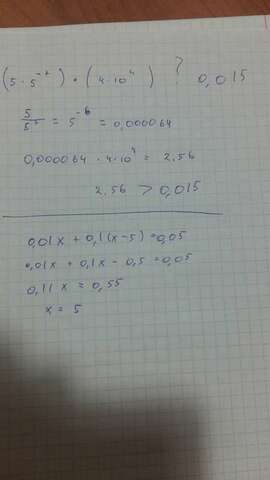 (5·5⁻⁷)·(4·10⁴) ? 0,015
5/5⁷ = 5⁻⁶ = 0,000064
0,000064 · 4·10⁴ = 2.56
2.56 > 0,015
0,01x + 0,1(x-5) = 0,05
0,01x + 0,1x - 0,5 = 0,05
0,11x = 0,55
x = 5